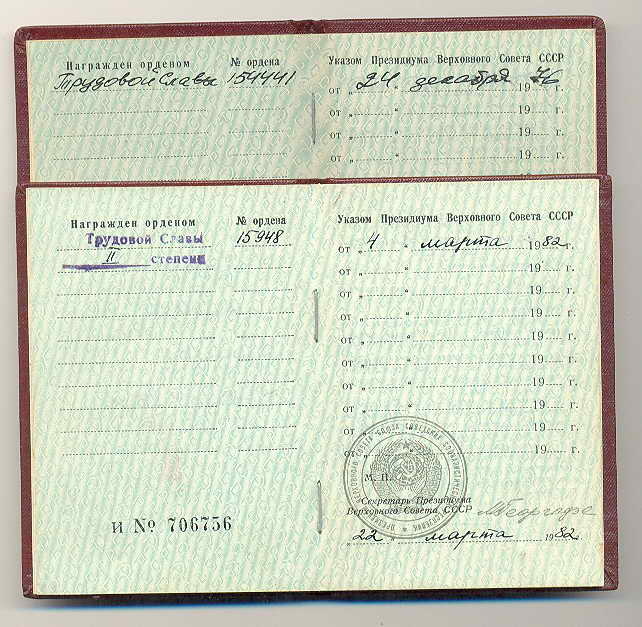 Награжден орденом № ордена Указом Президиума Верховного Совета СССР
Трудовой Славы 154441 от „ 24 “ декабря 1976 г.
от „ “ 19 г.
от „ “ 19 г.
от „ “ 19 г.
Награжден орденом № ордена Указом Президиума Верховного Совета СССР
Трудовой Славы 15948 от „ 4 “ марта 1982 г.
II степени от „ “ 19 г.
от „ “ 19 г.
от „ “ 19 г.
от „ “ 19 г.
от „ “ 19 г.
от „ “ 19 г.
от „ “ 19 г.
от „ “ 19 г.
от „ “ 19 г.
М. П.
Секретарь Президиума
Верховного Совета СССР
И № 706756
„ 22 “ марта 1982